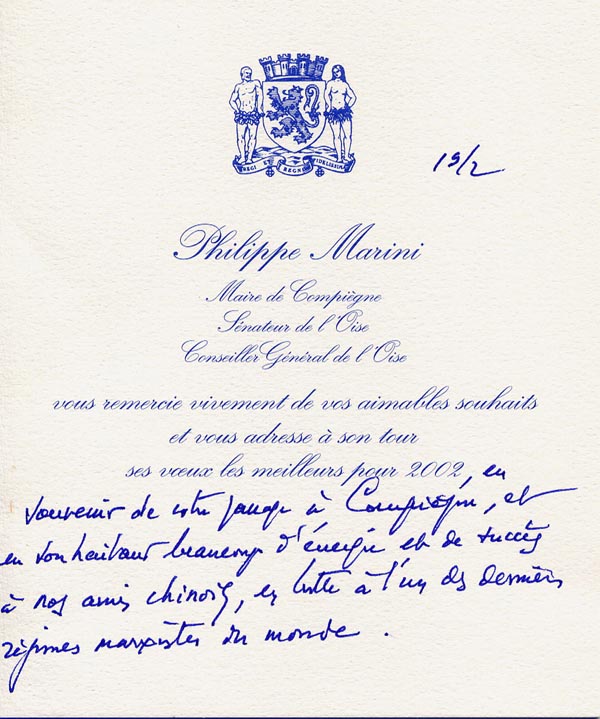 REGI ET REGNO FIDELISSIMA
19/2
Philippe Marini
Maire de Compiègne
Sénateur de l'Oise
Conseiller Général de l'Oise
vous remercie vivement de vos aimables souhaits
et vous adresse à son tour
ses vœux les meilleurs pour 2002, en
souvenir de votre passage à Compiègne, et
en souhaitant beaucoup d'énergie et de succès
à nos amis chinois, en lutte à l'un des derniers
régimes marxistes du monde.